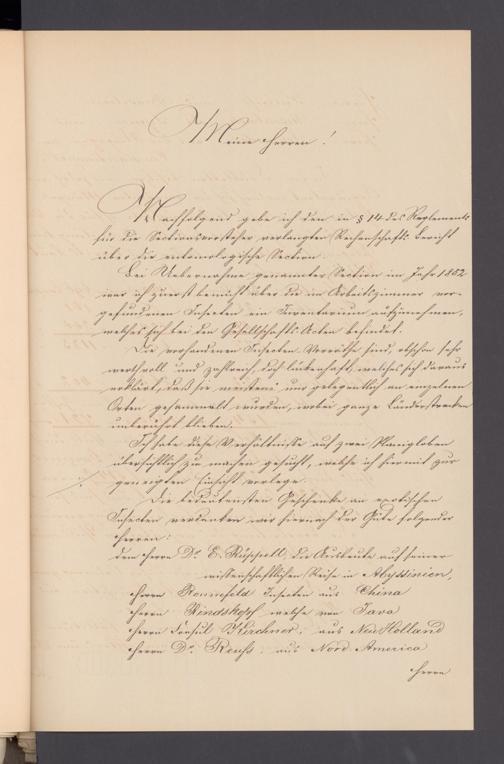 Meine Herren!
Nachfolgend gebe ich den in § 14 des Reglements
für die Sectionsvorsteher verlangten Rechenschafts-Bericht
über die entomologische Section.
Bei Uebernahme genannter Section im Jahr 1852
war ich zuerst bemüht über die im Arbeitszimmer vor-
gefundenen Insecten ein Inventarium aufzunehmen,
welches sich bei den Gesellschafts Acten befindet.
Die vorhandenen Insecten-Vorräthe sind, obschon sehr
werthvoll und zahlreich, doch lückenhaft, welches sich daraus
erklärt, daß sie meistens nur gelegentlich an einzelnen
Orten gesammelt wurden, wobei ganze Länderstrecken
unberührt blieben.
Ich habe diese Verhältnisse auf zwei Planigloben
übersichtlich zu machen gesucht, welche ich hiermit zur
geneigten Einsicht vorlege.
Die bedeutensten Geschenke an exotischen
Insecten verdanken wir hiernach der Güte folgender
Herren:
dem Herrn Dr. E. Rüppell, die Ausbeute auf seiner
wissenschaftlichen Reise in Abyssinien,
Herrn Insecten aus China
Herrn Rindskopf welche von Java
Herrn Consul Kirchner, aus Neu Holland
Herrn Dr. Reuss: aus Nord America
Herrn